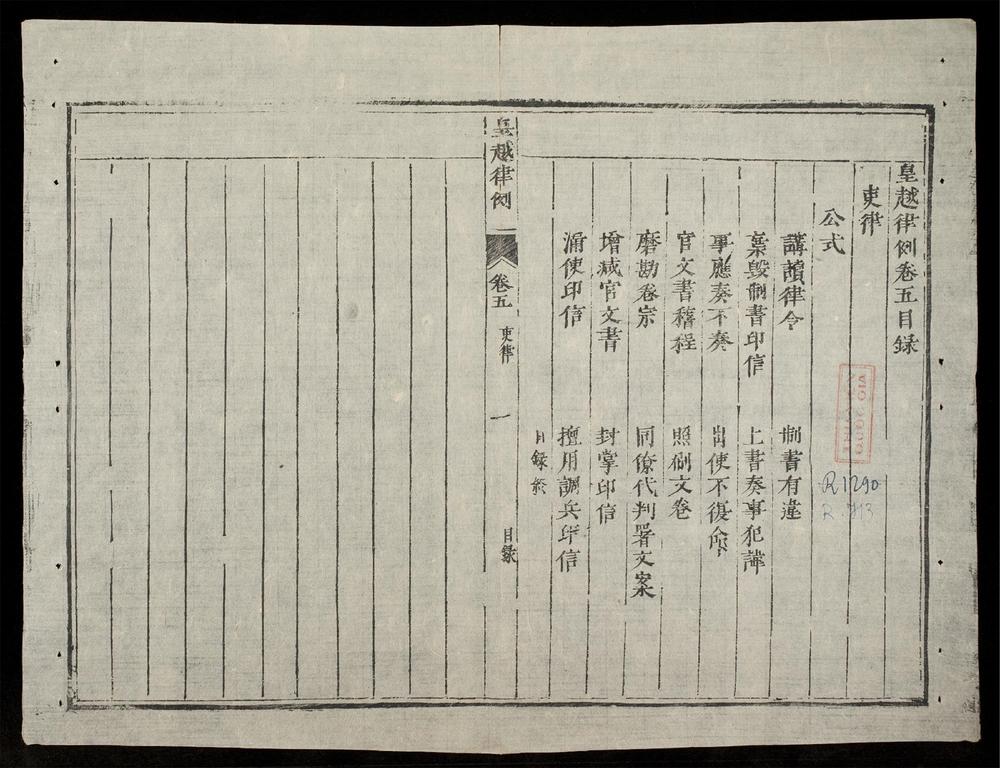 皇越律例卷五目録
吏律
公式
講讀律令 制書有違
棄毀制書印信 上書奏事犯諱
事應奏不奏 出使不復命
官文書稽程 照刷文卷
磨勘卷宗 同僚代判署文案
增減官文書 封掌印信
漏使印信 擅用調兵印信
目録終
皇越律例 卷五 吏律 一 目録
R 1290